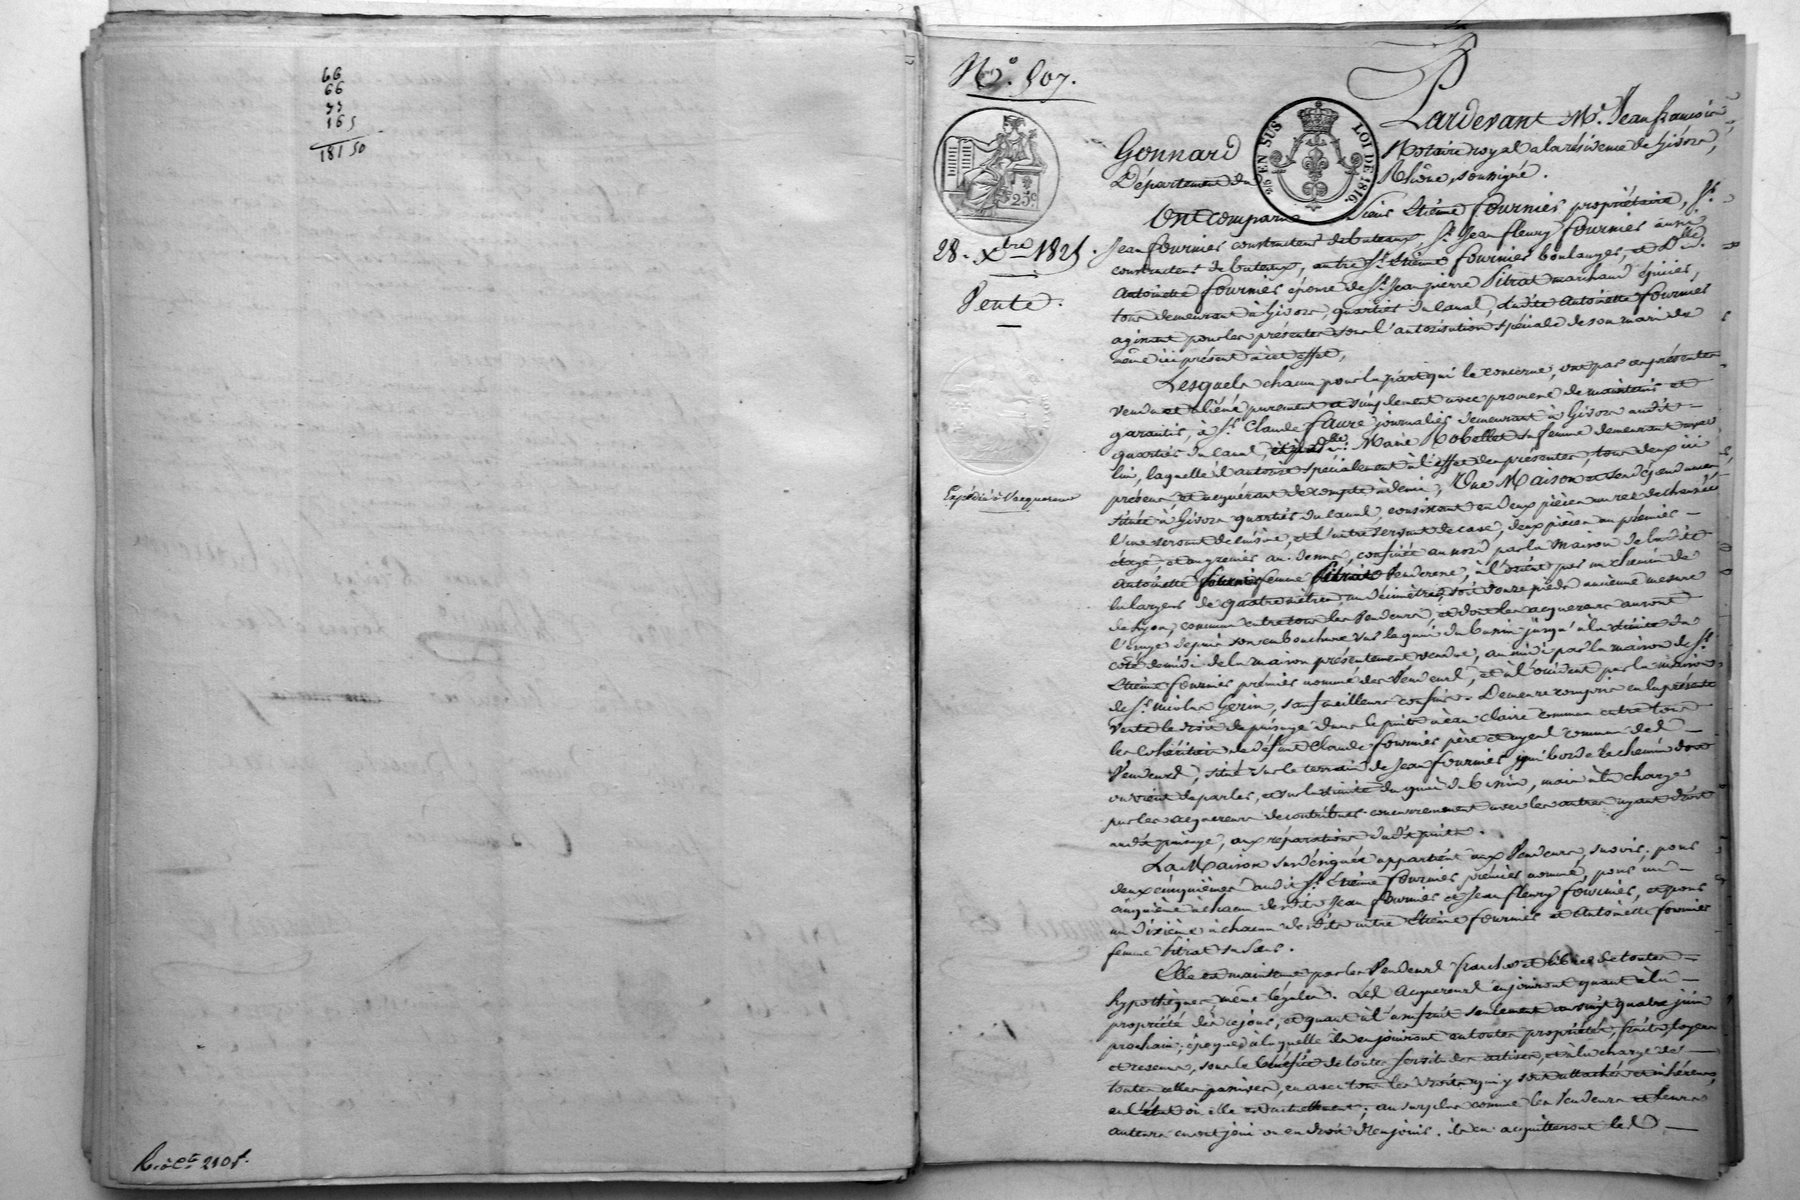 66
66
33
16 5
181 50
R. à Cte 2105.
No. 507.
25c
28. Xbre 1825.
Vente.
Expédié à l'acquereur
26 EN SUS LOI DE 1816.
Pardevant Me. Jean françois
Gonnard Notaire royal à la résidence de Givors,
Département du Rhône, soussigné.
Ont comparu Sieur Etiene fournier propriétaire, Sr.
Jean fournier constructeur de bateaux, Sr. Jean fleury fournier aussi
constructeur de bateaux, autre Sr. Etiene fournier boulanger, et Dlle
Antoinette fournier épouse de Sr. Jean pierre Pitrat marchand épicier,
tous demeurant à Givors, quartier du canal, ladite Antoinette fournier
agissant pour les présentes sous l'autorisation spéciale de son mari de
même ici présent à cet effet,
Lesquels chacun pour la part qui le concerne, ont par ces présentes
vendu et aliéné purement et simplement avec promesse de maintenir et
garantir, à Sr. Claude faure journalier demeurant à Givors audit
quartier du canal, et à dlle Marie Robellet sa femme demeurant avec
lui, laquelle il autorise spécialement à l'effet des présentes, tous deux ici
présens et acquérant de compte à demi, Une Maison
située à Givors quartier du canal, consistant en deux pièces au rez de chaussée
l'une servant de cuisine, et l'autre servant de cave, deux pièces au premier
étage, et un grenier au-dessus, confinée au nord par la maison de ladite
Antoinette fournier femme Pitrat Venderesse, à l'orient par un chemin de
la largeur de quatre mètres un décimètre, soit douze pieds ancienne mesure
de Lyon, commun entre tous les Vendeurs, et dont les acquereurs auront
l'usage depuis son embouchure sur le quai du bassin jusqu'à la limite du
coté de midi de la maison présentement vendue, au midi par la maison de Sr.
Etiene fournier premier nommé des Vendeurs, et à l'occident par la maison
de Sr. Nicolas Gerin, sauf meilleurs confins. Demeure compris en la présente
vente le droit de puisage dans le puits à eau claire commun entre tous
les Cohéritiers de défunt Claude fournier père et ayeul commun des
Vendeurs, situé sur le terrain de Jean fournier qui borde le chemin dont
on vient de parler, et sur la limite du quai du bassin, mais à la charge
par les acquereurs de contribuer concurremment avec les autres ayant droit
audit puisage, aux réparations dudit puits.
La Maison sus désignée appartient aux Vendeurs, savoir; pour
deux cinquièmes audit Sr. Etiene fournier premier nommé, pour un
cinquième à chacun desdits Jean fournier et Jean fleury fournier, et pour
un dixième à chacun desdits autre Etiene fournier et Antoinette fournier
femme Pitrat sa sœur.
Elle est maintenue par les Vendeurs franche et libre de toutes
hypothèques, même légales. Les Acquereurs en jouiront quant à la
propriété dès ce jour, et quant à l'usufruit seulement au vingt quatre juin
prochain; époque à laquelle ils en jouiront en toutes propriétés, fruits, loyers
et revenus, sous le bénéfice de toutes servitudes actives, et à la charge de
toutes celles passives, en avec tous les droits qui y sont attachés et inhérens,
en l'état où elle est actuellement; au surplus comme les Vendeurs et leurs
auteurs en ont joui ou eu droit d'en jouir. ils en acquitteront les